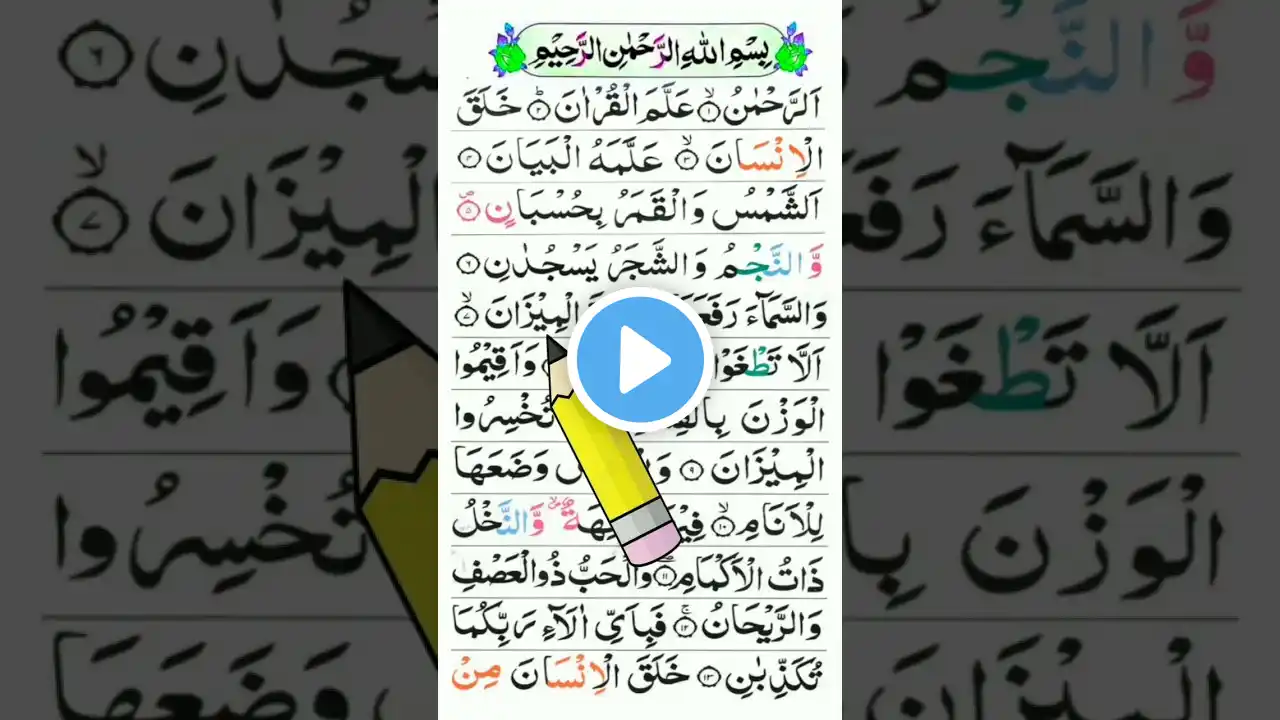 بِسْمِ اللهِ الرَّحْمٰنِ الرَّحِيْمِ
اَلرَّحْمٰنُ ۙ۱ عَلَّمَ الْقُرْاٰنَ ؕ۲ خَلَقَ
الْاِنْسَانَ ۙ۳ عَلَّمَهُ الْبَيَانَ ۴
اَلشَّمْسُ وَالْقَمَرُ بِحُسْبَانٍ ۪۵
وَّالنَّجْمُ وَالشَّجَرُ يَسْجُدٰنِ ۶
وَالسَّمَآءَ الْمِيْزَانَ ۙ۷
اَلَّا تَطْغَوْا وَاَقِيْمُوا
الْوَزْنَ تُخْسِرُوا
الْمِيْزَانَ ۹ وَضَعَهَا
لِلْاَنَامِ ۙ۱۰ وَّالنَّخْلُ
ذَاتُ الْاَكْمَامِ ۱۱ وَالْحَبُّ ذُو الْعَصْفِ
وَالرَّيْحَانُ ۚ۱۲ فَبِاَيِّ اٰلَآءِ رَبِّكُمَا
تُكَذِّبٰنِ ۱۳ خَلَقَ الْاِنْسَانَ مِنْ